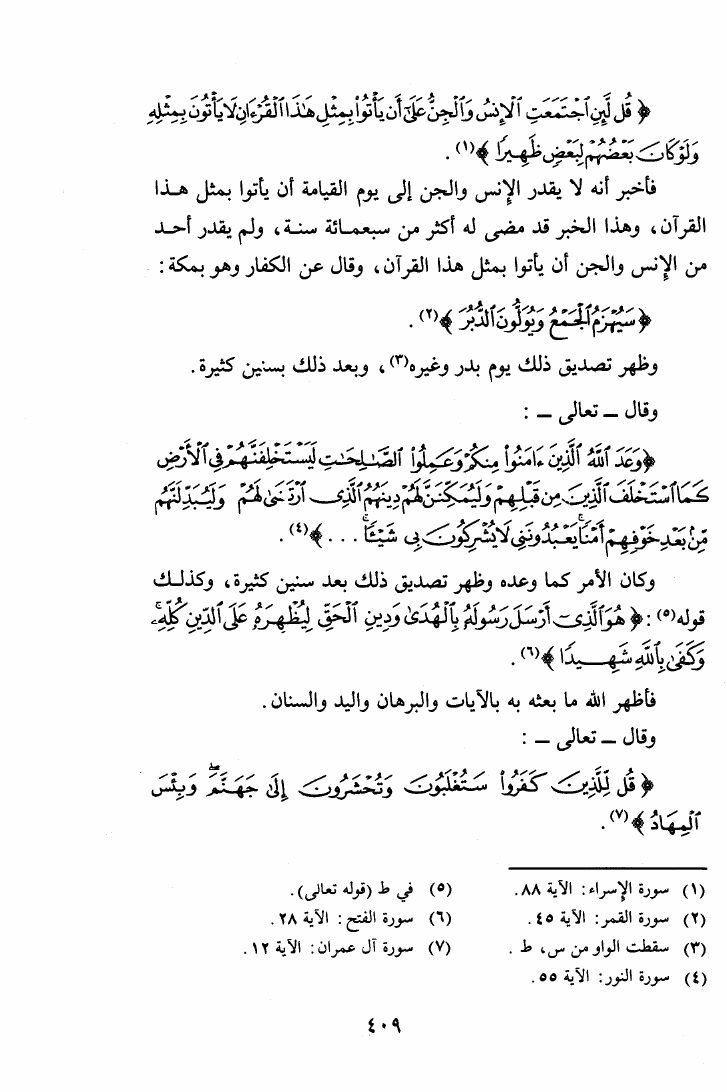 ﴿ قُل لَّئِنِ ٱجْتَمَعَتِ ٱلْإِنسُ وَٱلْجِنُّ عَلَىٰٓ أَن يَأْتُوا۟ بِمِثْلِ هَـٰذَا ٱلْقُرْءَانِ لَا يَأْتُونَ بِمِثْلِهِۦ
وَلَوْ كَانَ بَعْضُهُمْ لِبَعْضٍ ظَهِيرًا ﴾(١) .
فأخبر أنه لا يقدر الإنس والجن إلى يوم القيامة أن يأتوا بمثل هـذا
القرآن، وهذا الخبر قد مضى له أكثر من سبعمـائة سنـة، ولم يقدر أحـد
من الإنس والجن أن يأتوا بمثل هذا القرآن، وقال عن الكفار وهو بمكة:
﴿ سَيُهْزَمُ ٱلْجَمْعُ وَيُوَلُّونَ ٱلدُّبُرَ ﴾(٢) .
وظهر تصديق ذلك يوم بدر وغيره(٣)، وبعد ذلك بسنين كثيرة.
وقال ــ تعالى ــ :
﴿ وَعَدَ ٱللَّهُ ٱلَّذِينَ ءَامَنُوا۟ مِنكُمْ وَعَمِلُوا۟ ٱلصَّـٰلِحَـٰتِ لَيَسْتَخْلِفَنَّهُمْ فِى ٱلْأَرْضِ
كَمَا ٱسْتَخْلَفَ ٱلَّذِينَ مِن قَبْلِهِمْ وَلَيُمَكِّنَنَّ لَهُمْ دِينَهُمُ ٱلَّذِى ٱرْتَضَىٰ لَهُمْ وَلَيُبَدِّلَنَّهُم
مِّنۢ بَعْدِ خَوْفِهِمْ أَمْنًا ۚ يَعْبُدُونَنِى لَا يُشْرِكُونَ بِى شَيْـًٔا ۚ . . . ﴾(٤) .
وكان الأمر كما وعده وظهر تصديق ذلك بعد سنين كثيرة، وكذلـك
قوله(٥): ﴿ هُوَ ٱلَّذِىٓ أَرْسَلَ رَسُولَهُۥ بِٱلْهُدَىٰ وَدِينِ ٱلْحَقِّ لِيُظْهِرَهُۥ عَلَى ٱلدِّينِ كُلِّهِۦ ۚ
وَكَفَىٰ بِٱللَّهِ شَهِيدًا ﴾(٦) .
فأظهر الله ما بعثه به بالآيات والبرهان واليد والسنان.
وقال ــ تعالى ــ :
﴿ قُل لِّلَّذِينَ كَفَرُوا۟ سَتُغْلَبُونَ وَتُحْشَرُونَ إِلَىٰ جَهَنَّمَ ۚ وَبِئْسَ
ٱلْمِهَادُ ﴾(٧) .
(١) سورة الإسراء: الآية ٨٨.
(٢) سورة القمر: الآية ٤٥.
(٣) سقطت الواو من س، ط .
(٤) سورة النور: الآية ٥٥.
(٥) في ط (قوله تعالى).
(٦) سورة الفتح: الآية ٢٨.
(٧) سورة آل عمران: الآية ١٢.
٤٠٩